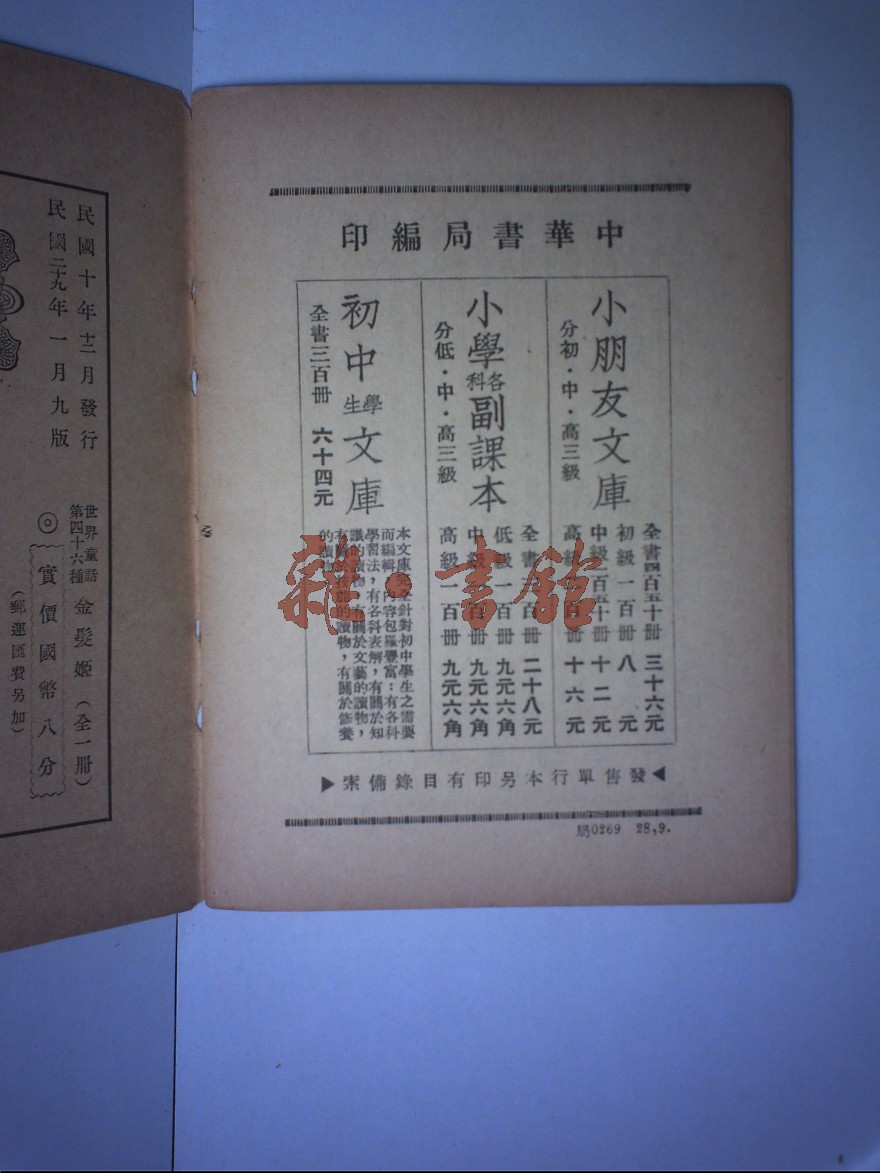 中華書局編印
小朋友文庫
分初·中·高三級
全書四百五十冊 三十六元
初級二百冊 八元
中級一百五十冊 十二元
高級一百冊 十六元
小學各科副課本
分低·中·高三級
全書三百冊 二十八元
低級一百冊 九元六角
中級一百冊 九元六角
高級一百冊 九元六角
初中學生文庫
全書三百冊 六十四元
本文庫完全針對初中學生之需要
而編輯,內容包羅豐富:有各科
學習法,有各科表解,有關於知
識的讀物,有關於文藝的讀物,
有關於技能的讀物,有關於修養
的讀物。
發售單行本另印有目錄備索
局0269 28,9.
民國十年十二月發行
民國二十九年一月九版
世界童話第四十六種 金髮姬 (全一冊)
◎ 實價國幣八分
(郵運匯費另加)
雜·書館